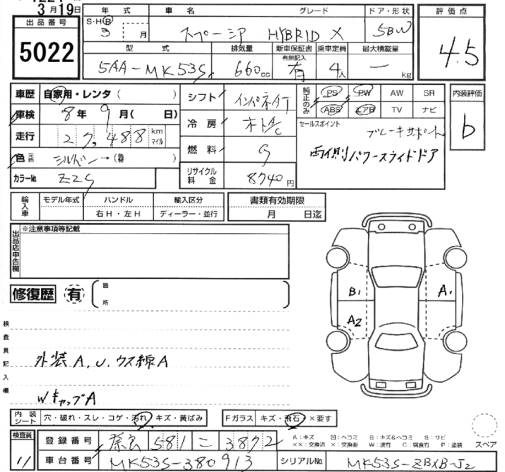 3月19日
年
車名
グレード
ドア・形状
評価点
出品番号
5022
S・H・R
3
月
スペーシア
HYBRID X
5BW
4.5
型式
排気量
新車保証書
有無記入
乗車定員
最大積載量
5AA-MK53S
660cc
有
4人
kg
車歴
自家用・レンタ( )
シフト
インパネAT
純正のみ
PS
PW
AW
SR
内装評価
b
車検
8年9月( 日)
冷房
オートAC
ABS
エアB
TV
ナビ
セールスポイント
走行
27,488
km
マイル
ブレーキサポート
両側パワースライドドア
色
シルバー
燃料
G
カラーNo.
Z2S
リサイクル料金
8740円
輸入車
モデル年式
ハンドル
輸入区分
書類有効期限
右H・左H
ディーラー・並行
月
日迄
出品店申告欄
※注意事項等記載
修復歴
有
箇所
B1
A2
A1
検査員記入欄
外装A、U、ウス線A
WキャップA
内装シート
穴・破れ・スレ・コゲ・汚れ・キズ・黄ばみ
Fガラス
キズ・飛石・×要す
スペア
検査員
11
登録番号
奈良581 こ 3872
A:キズ
車台番号
MK53S-380913
シリアルNo.
MK53S-ZBXB-J2